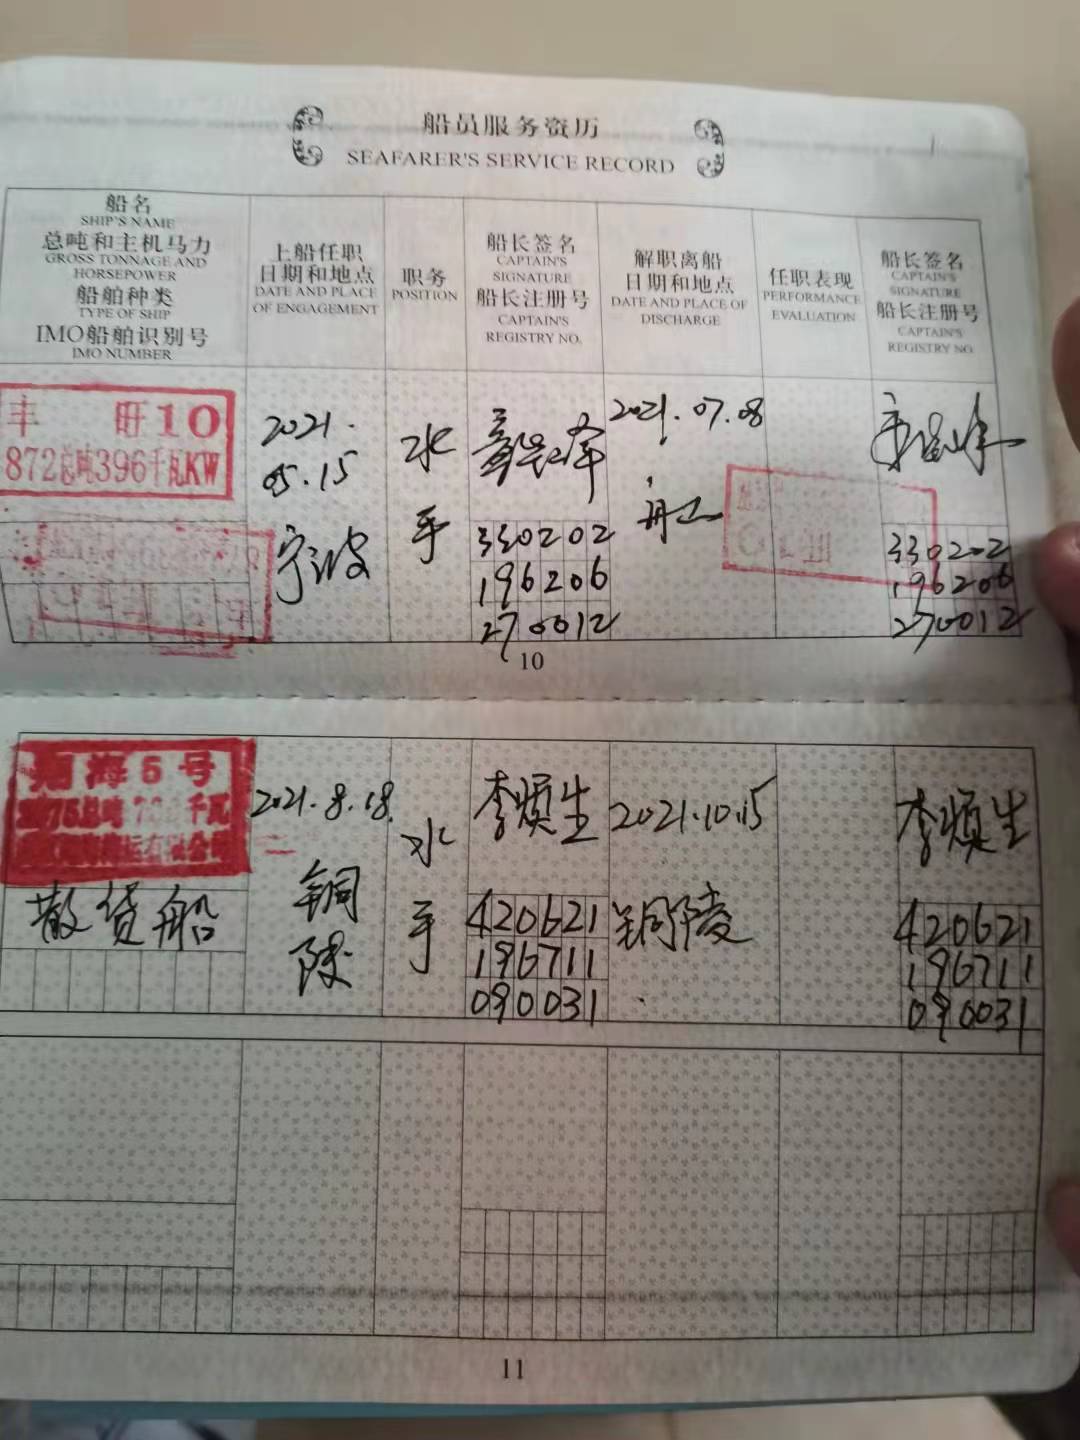 船员服务资历
SEAFARER'S SERVICE RECORD
船名
SHIP'S NAME
总吨和主机马力
GROSS TONNAGE AND
HORSEPOWER
船舶种类
TYPE OF SHIP
IMO船舶识别号
IMO NUMBER
上船任职
日期和地点
DATE AND PLACE
OF ENGAGEMENT
职务
POSITION
船长签名
CAPTAIN'S
SIGNATURE
船长注册号
CAPTAIN'S
REGISTRY NO.
解职离船
日期和地点
DATE AND PLACE OF
DISCHARGE
任职表现
PERFORMANCE
EVALUATION
船长签名
CAPTAIN'S
SIGNATURE
船长注册号
CAPTAIN'S
REGISTRY NO.
丰 旺10
872总吨396千瓦KW
2021.
05.15
宁波
水
手
330202
196206
270012
2021.07.08
舟山
330202
196206
270012
10
海6号
千瓦
散货船
2021.8.18.
铜
陵
水
手
李焕生
420621
196711
090031
2021.10.15
铜陵
李焕生
420621
196711
090031
11